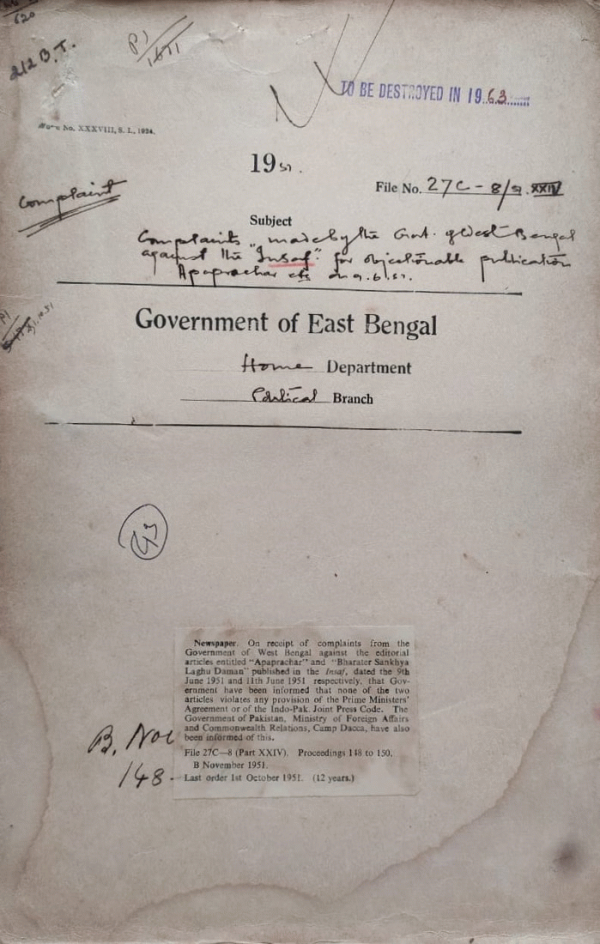 620
212 B.T.
P1/1571
TO BE DESTROYED IN 1963
No. XXXVIII, S. I., 1924.
1951.
Complaint
File No. 27C-8/51. XXIV
Subject
Complaints made by the Govt. of West Bengal
against the "Insaf" for objectionable publication
Apaprachar etc on 9.6.51.
Government of East Bengal
Home Department
Political Branch
Newspaper. On receipt of complaints from the
Government of West Bengal against the editorial
articles entitled "Apaprachar" and "Bharater Sankhya
Laghu Daman" published in the Insaf, dated the 9th
June 1951 and 11th June 1951 respectively, that Gov-
ernment have been informed that none of the two
articles violates any provision of the Prime Ministers'
Agreement or of the Indo-Pak. Joint Press Code. The
Government of Pakistan, Ministry of Foreign Affairs
and Commonwealth Relations, Camp Dacca, have also
been informed of this.
B. Nov
File 27C—8 (Part XXIV). Proceedings 148 to 150.
B November 1951.
148-
Last order 1st October 1951. (12 years.)